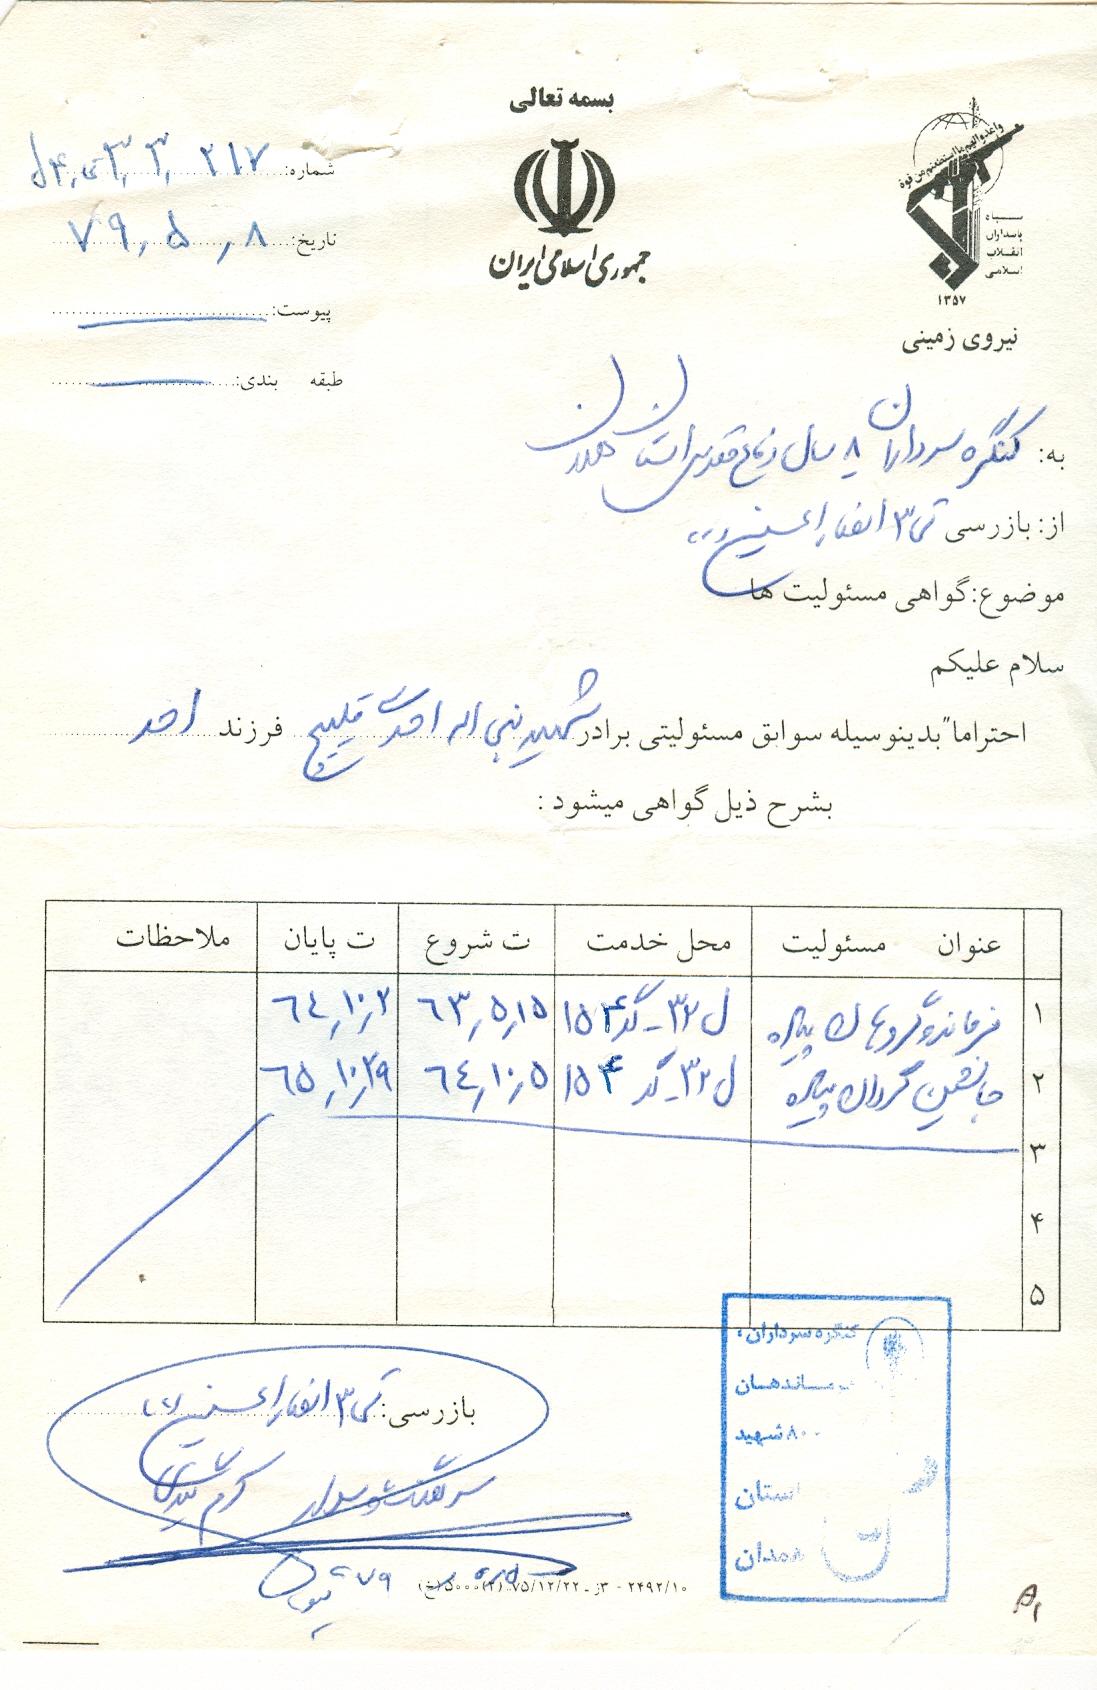 بسمه تعالی
جمهوری اسلامی ایران
واعدوا لهم ما استطعتم من قوة
سپاه
پاسداران
انقلاب
اسلامی
۱۳۵۷
نیروی زمینی
شماره: ۲۱۷
تاریخ: ۷۹,۵,۸
پیوست:
طبقه بندی:
به: کنگره سرداران ۸ سال دفاع مقدس استان همدان
از: بازرسی تی ۳ انصارالحسین
موضوع: گواهی مسئولیت ها
سلام علیکم
احتراما" بدینوسیله سوابق مسئولیتی برادر شهید نبی اله احمدی فرزند احمد
بشرح ذیل گواهی میشود :
عنوان مسئولیت محل خدمت ت شروع ت پایان ملاحظات
۱ فرمانده گروهان پیاده ل ۳۲ - گد ۱۵۴ ۶۳,۵,۱۵ ۶۴,۱۰,۲
۲ جانشین گردان پیاده ل ۳۲ - گد ۱۵۴ ۶۴,۱۰,۵ ۶۵,۱۰,۲۹
۳
۴
۵
بازرسی: تی ۳ انصارالحسین
کنگره سرداران،
۸۰۰ شهید
استان
همدان
۲۴۹۲/۱۰ - ۳ز - ۷۵/۱۲/۲۲ (۲) ۵۰۰۰ (خ)